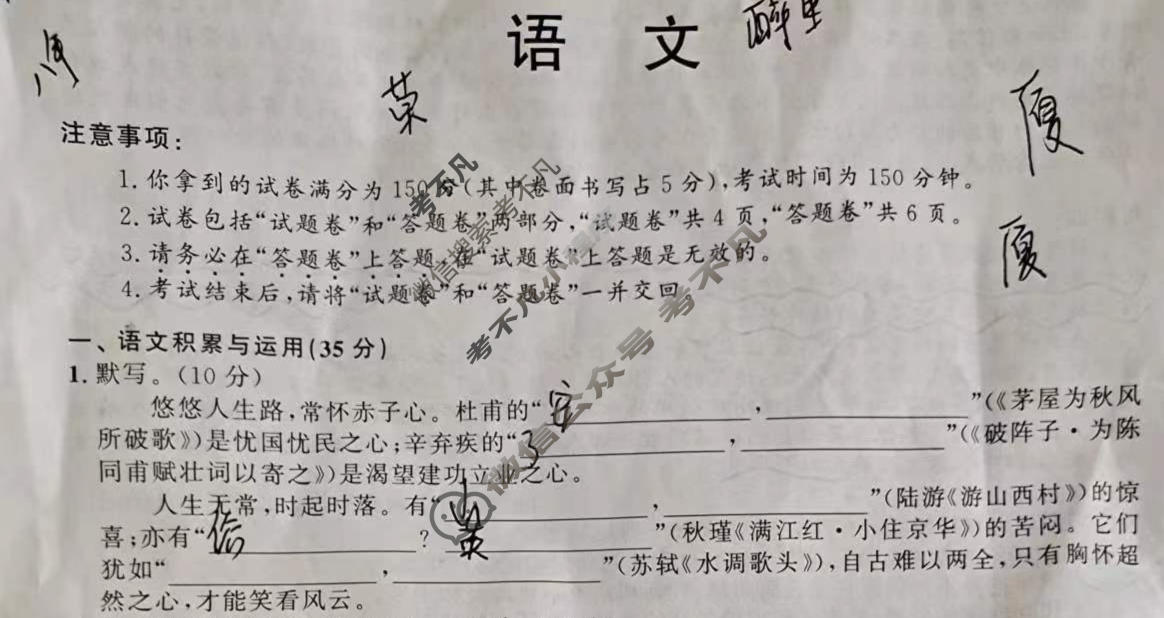 语 文 醉里
荣
厦
厦
注意事项：
1. 你拿到的试卷满分为150分（其中卷面书写占5分），考试时间为150分钟。
2. 试卷包括“试题卷”和“答题卷”两部分，“试题卷”共4页，“答题卷”共6页。
3. 请务必在“答题卷”上答题，在“试题卷”上答题是无效的。
4. 考试结束后，请将“试题卷”和“答题卷”一并交回
一、语文积累与运用（35分）
1. 默写。（10分）
悠悠人生路，常怀赤子心。杜甫的“安＿＿＿＿，＿＿＿＿”（《茅屋为秋风
所破歌》）是忧国忧民之心；辛弃疾的“了＿＿＿＿，＿＿＿＿”（《破阵子·为陈
同甫赋壮词以寄之》）是渴望建功立业之心。
人生无常，时起时落。有“山＿＿＿＿，＿＿＿＿”（陆游《游山西村》）的惊
喜；亦有“＿＿＿＿？＿＿＿＿”（秋瑾《满江红·小住京华》）的苦闷。它们
犹如“＿＿＿＿，＿＿＿＿”（苏轼《水调歌头》），自古难以两全，只有胸怀超
然之心，才能笑看风云。
考不凡
微信搜索考不凡
微信公众号 考不凡